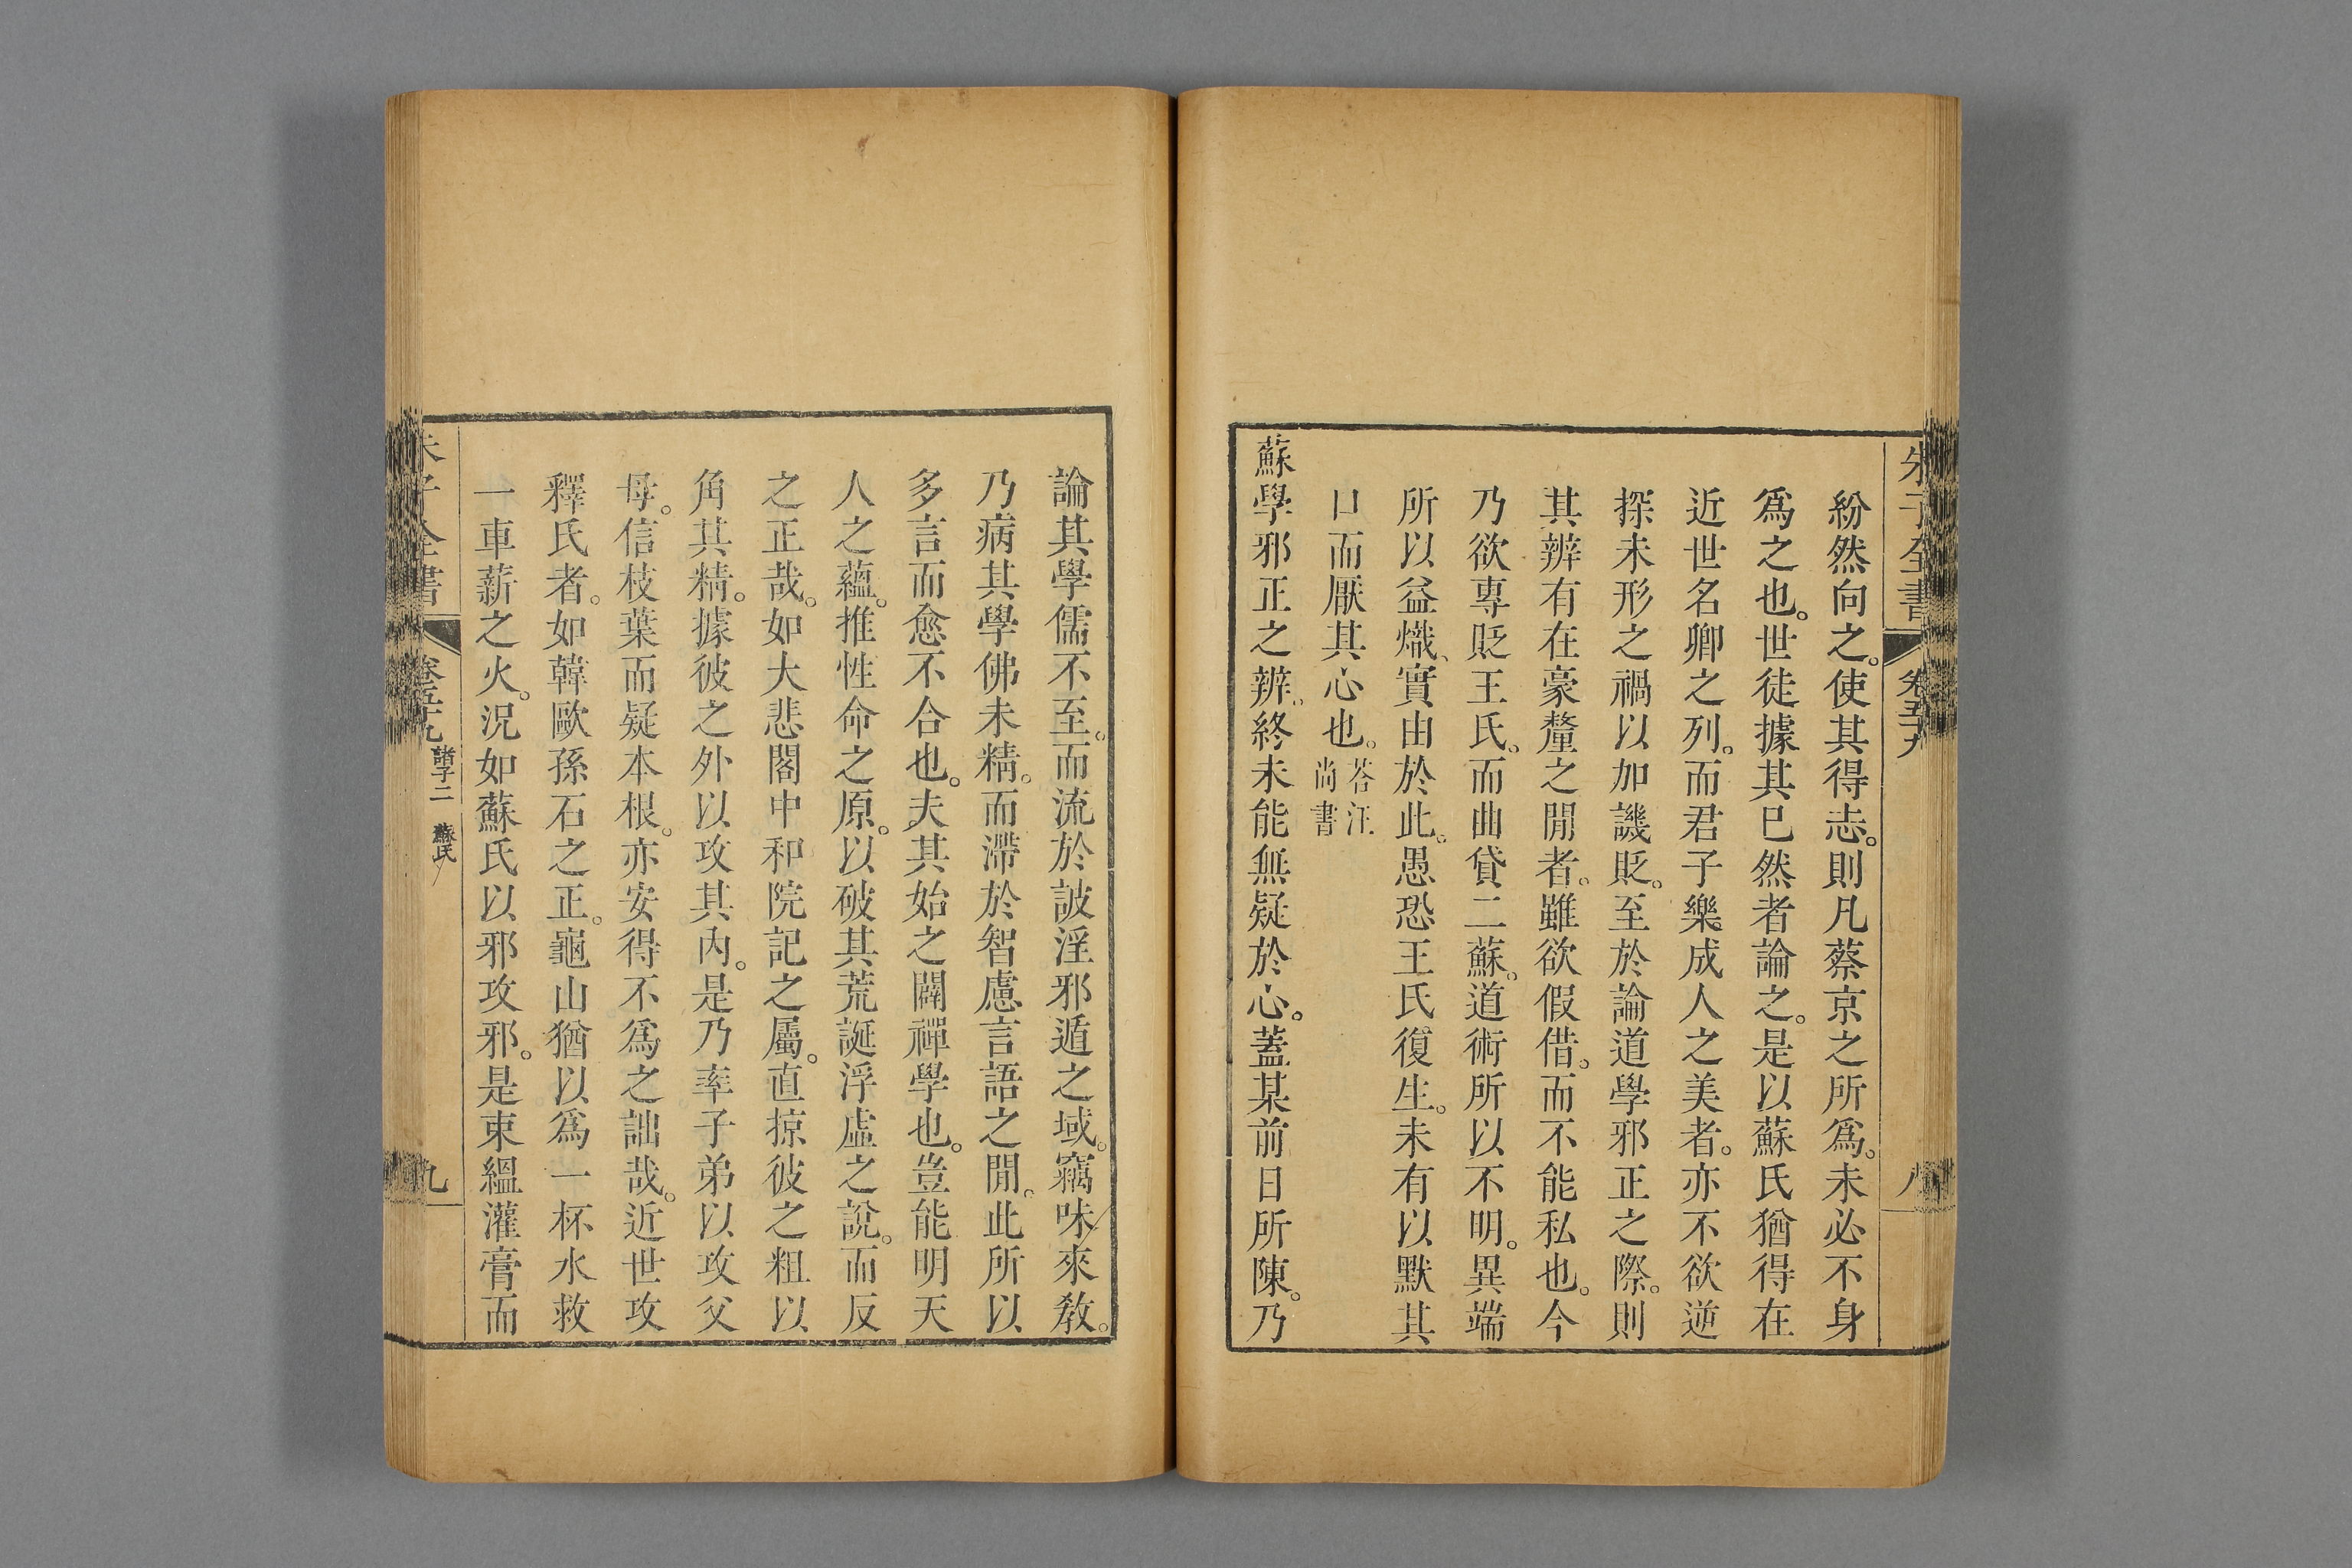 朱子全書 卷五十九 八
紛然向之。使其得志。則凡蔡京之所爲。未必不身
爲之也。世徒據其已然者論之。是以蘇氏猶得在
近世名卿之列。而君子樂成人之美者。亦不欲逆
探未形之禍以加譏貶。至於論道學邪正之際。則
其辨有在豪釐之閒者。雖欲假借。而不能私也。今
乃欲專貶王氏。而曲貸二蘇。道術所以不明。異端
所以益熾、實由於此。愚恐王氏復生。未有以默其
口而厭其心也。荅汪尚書
蘇學邪正之辨。終未能無疑於心。蓋某前日所陳。乃
論其學儒不至。而流於詖淫邪遁之域。竊味來敎。
乃病其學佛未精。而滯於智慮言語之閒。此所以
多言而愈不合也。夫其始之闢禪學也。豈能明天
人之蘊。推性命之原。以破其荒誕浮虛之說。而反
之正哉。如大悲閣中和院記之屬。直掠彼之粗以
角其精。據彼之外以攻其內。是乃率子弟以攻父
母。信枝葉而疑本根。亦安得不爲之詘哉。近世攻
釋氏者。如韓歐孫石之正。龜山猶以爲一杯水救
一車薪之火。況如蘇氏以邪攻邪。是束縕灌膏而
朱子全書 卷五十九 諸子二 蘇氏 九